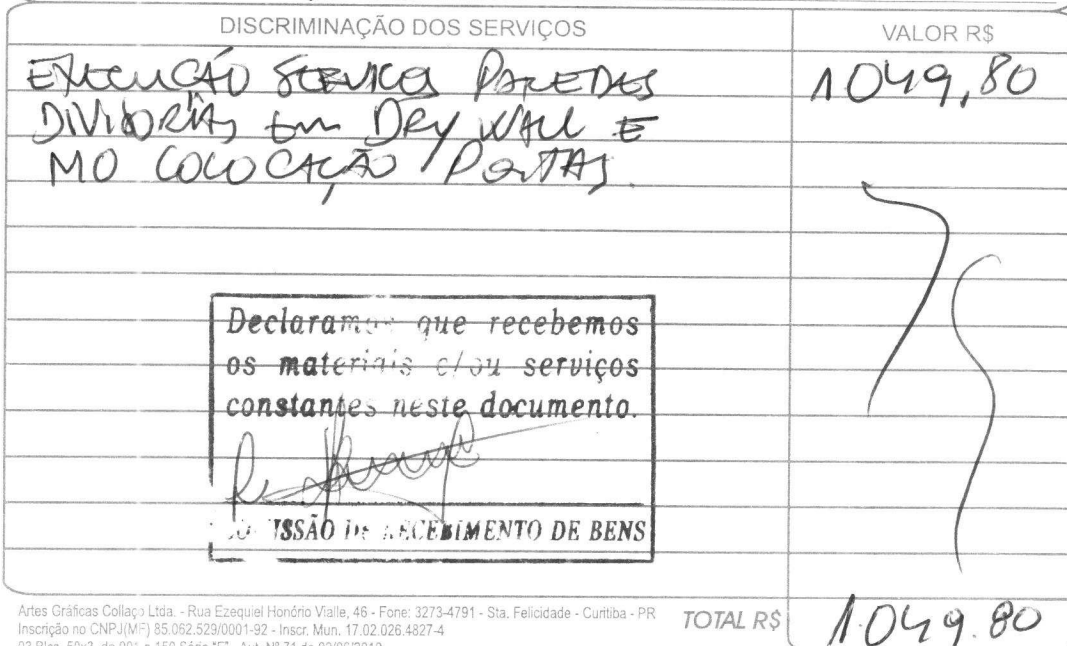 DISCRIMINAÇÃO DOS SERVIÇOS
VALOR R$
EXECUCÃO SERVICOS PAREDES
1049,80
DIVISÓRIAS EM DRY WALL E
MO COLOCAÇÃO PORTAS.
Declaramos que recebemos
os materiais e/ou serviços
constantes neste documento.
COMISSÃO DE RECEBIMENTO DE BENS
Artes Gráficas Collaço Ltda. - Rua Ezequiel Honório Vialle, 46 - Fone: 3273-4791 - Sta. Felicidade - Curitiba - PR
Inscrição no CNPJ(MF) 85.062.529/0001-92 - Inscr. Mun. 17.02.026.4827-4
TOTAL R$
1.049.80